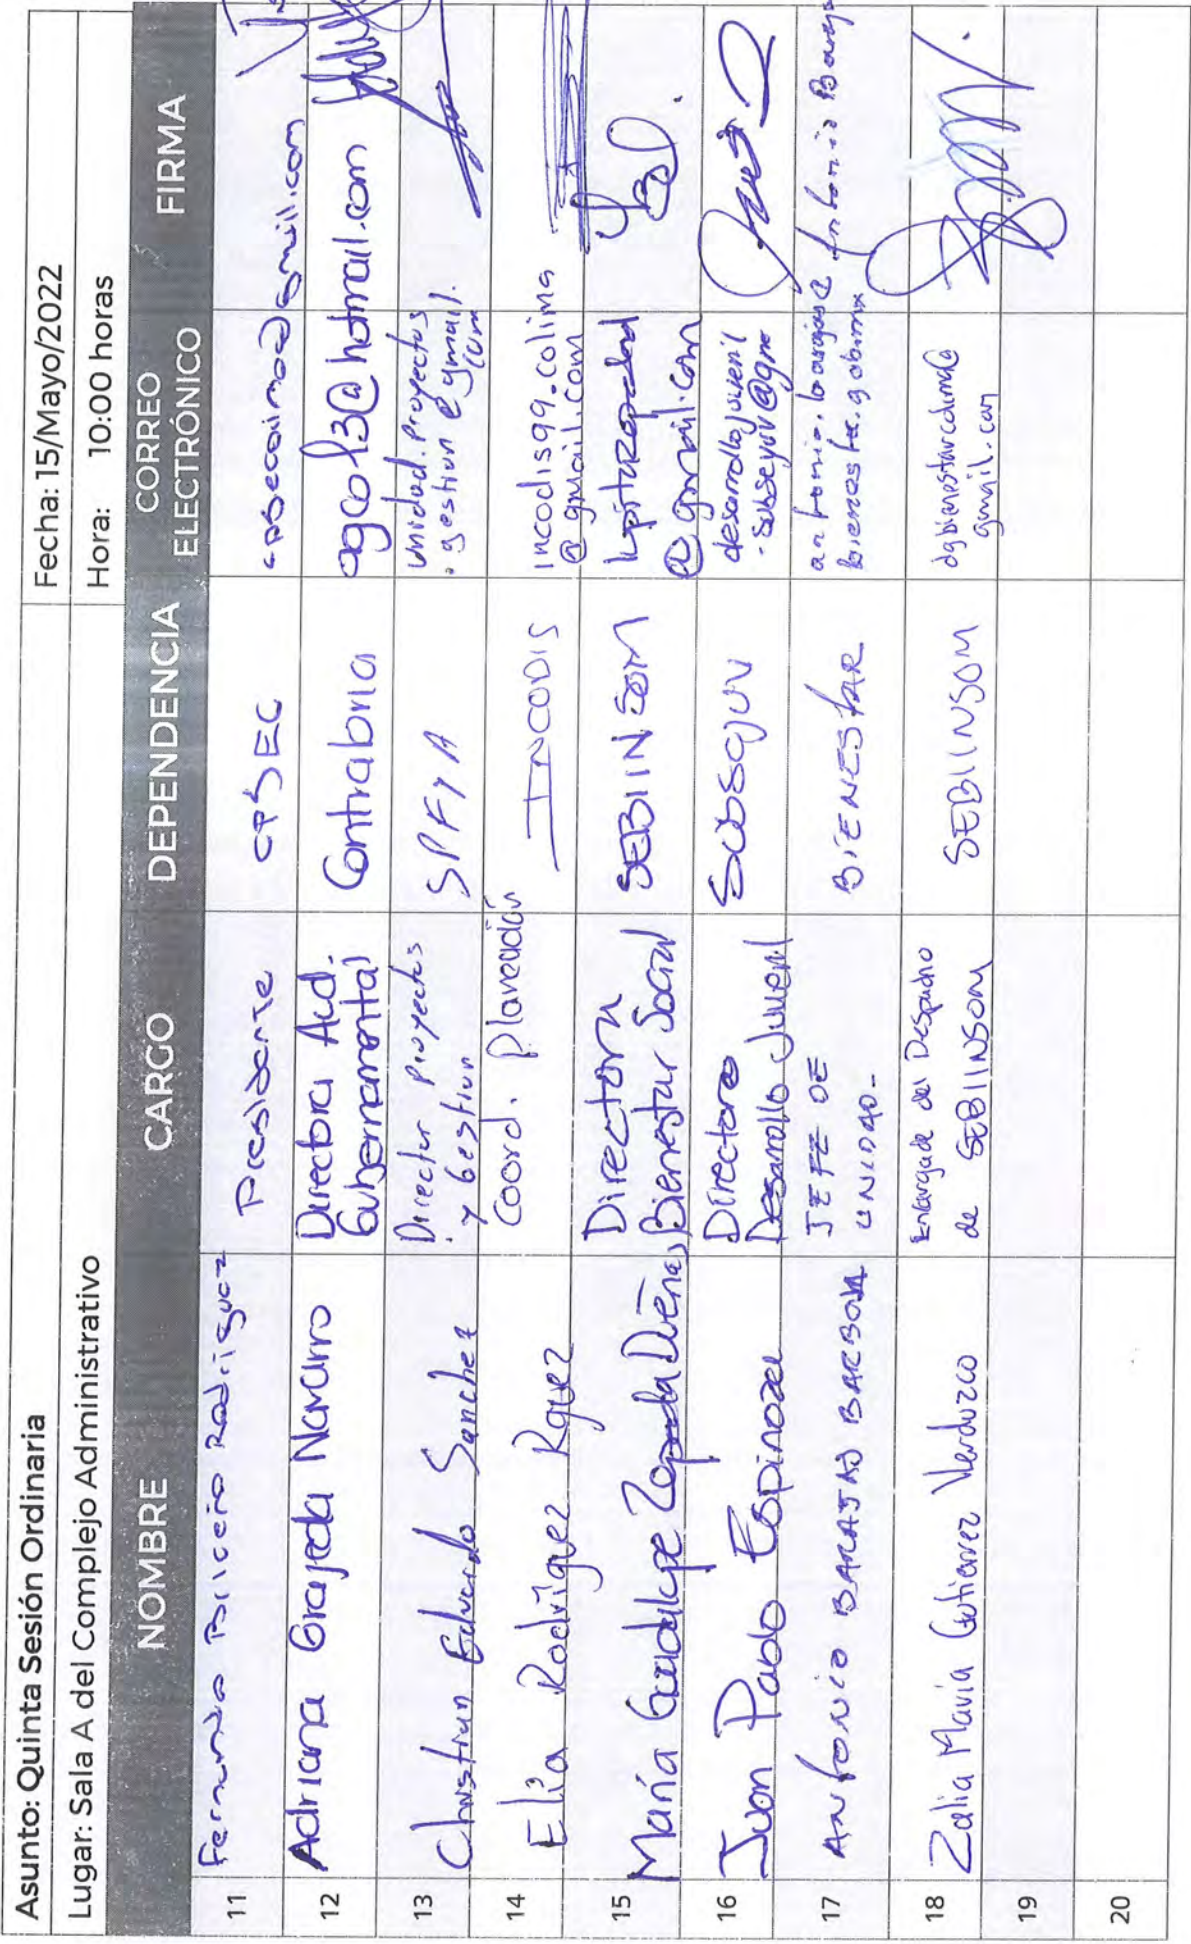 Asunto: Quinta Sesión Ordinaria
Fecha: 15/Mayo/2022
Lugar: Sala A del Complejo Administrativo
Hora: 10:00 horas
NOMBRE CARGO DEPENDENCIA CORREO ELECTRÓNICO FIRMA
11 Fernando Rodríguez Presidente CPSEC
12 Adriana Grajeda Navarro Directora Aud. Gubernamental Contraloria agco13@hotmail.com
13 Christian Eduardo Sanchez Director Proyectos y Gestion SPFyA unidad.proyectos.gestion@gmail.com
14 Elia Rodríguez Rguez Coord. Planeación INCODIS incodis99.colima@gmail.com
15 María Guadalupe Zepeda Dueñas Directora Bienestar Social SEBIINSOM @gmail.com
16 Juan Pablo Espinoza Director Desarrollo Juvenil desarrollojuvenil
17 ANTONIO BARAJAS BARBOSA JEFE DE UNIDAD- BIENESTAR antonio.barajas@ Antonio Barajas
18 Zalia María Gutierrez Verduzco Encargada del Despacho de SEBIINSOM SEBIINSOM dgbienestarcolima@gmail.com
19
20